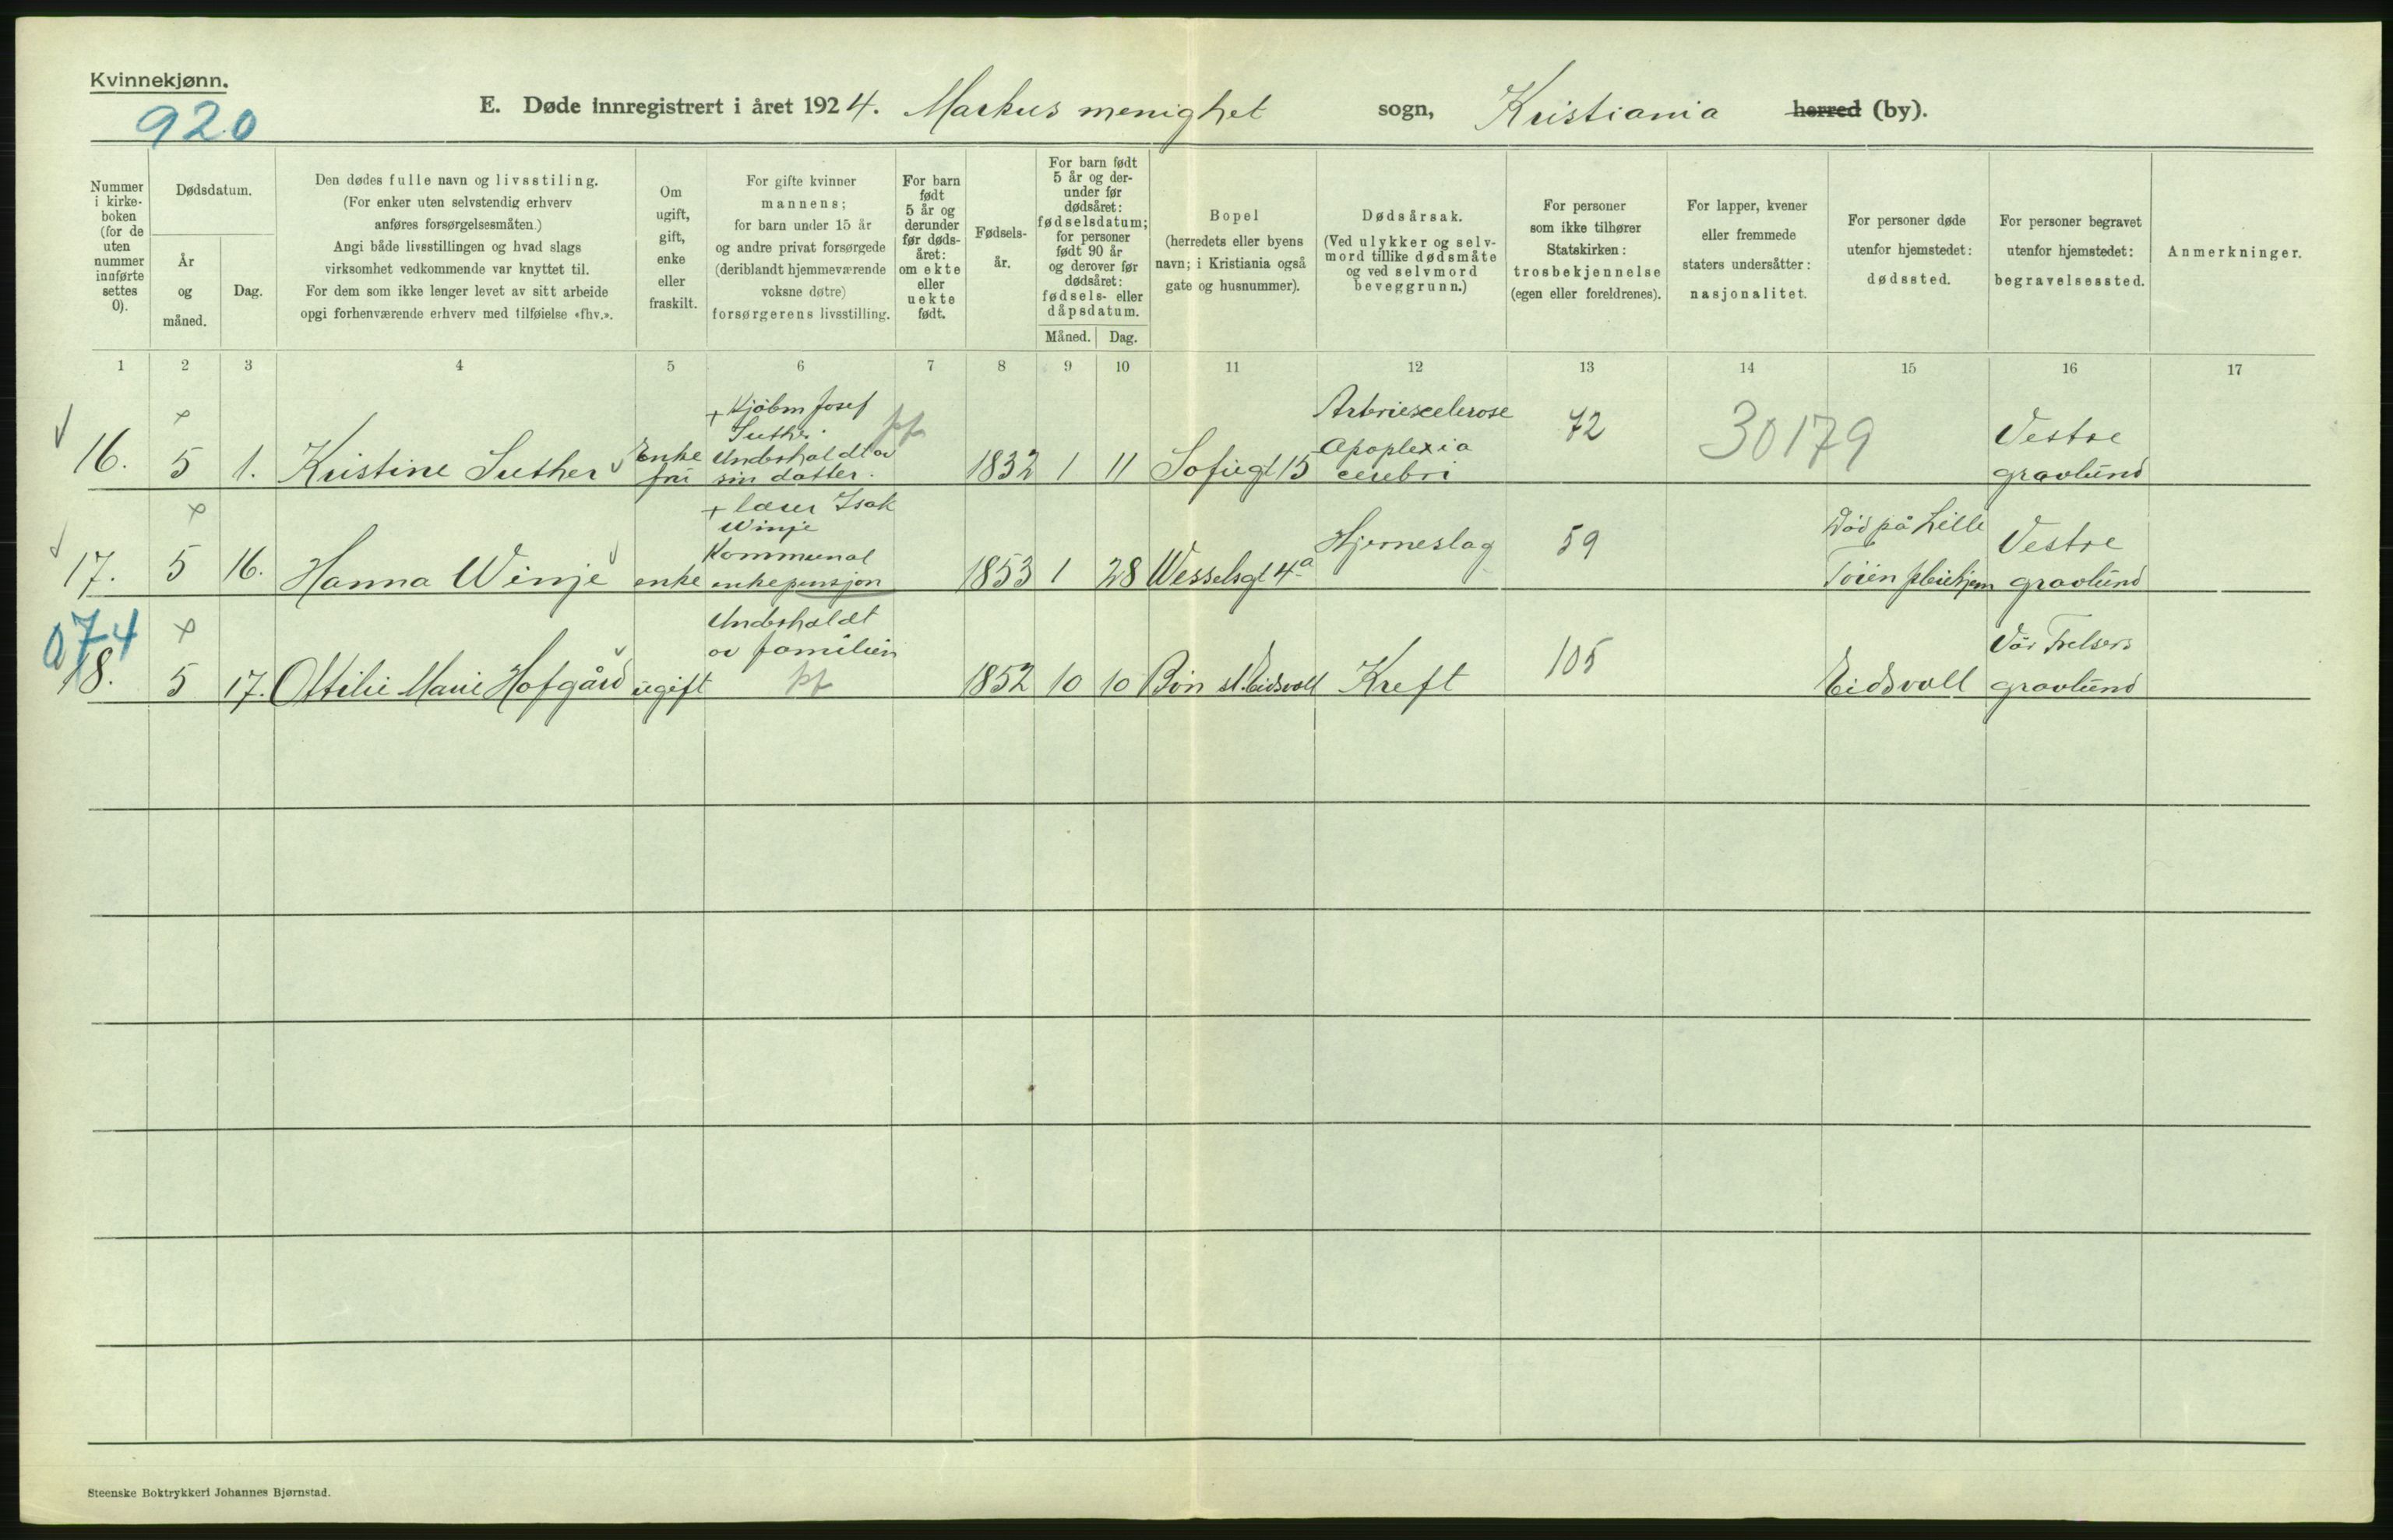 Kvinnekjønn.
920
E. Døde innregistrert i året 1924. Markus menighet sogn, Kristiania herred (by).
Nummer i kirke-boken (for de uten nummer innførte settes 0).
Dødsdatum.
År og måned.
Dag.
Den dødes fulle navn og livsstiling.
(For enker uten selvstendig erhverv
anføres forsørgelsesmåten.)
Angi både livsstillingen og hvad slags
virksomhet vedkommende var knyttet til.
For dem som ikke lenger levet av sitt arbeide
opgi forhenværende erhverv med tilføielse «fhv.».
Om ugift, gift, enke eller fraskilt.
For gifte kvinner
mannens;
for barn under 15 år
og andre privat forsørgede
(deriblandt hjemmeværende
voksne døtre)
forsørgerens livsstilling.
For barn født 5 år og derunder før døds-året: om ekte eller uekte født.
Fødsels-år.
For barn født 5 år og der-under før dødsåret: fødselsdatum; for personer født 90 år og derover før dødsåret: fødsels- eller dåpsdatum.
Måned. Dag.
Bopel
(herredets eller byens
navn; i Kristiania også
gate og husnummer).
Dødsårsak.
(Ved ulykker og selv-
mord tillike dødsmåte
og ved selvmord
beveggrunn.)
For personer
som ikke tilhører
Statskirken:
trosbekjennelse
(egen eller foreldrenes).
For lapper, kvener
eller fremmede
staters undersåtter:
nasjonalitet.
For personer døde
utenfor hjemstedet:
dødssted.
For personer begravet
utenfor hjemstedet:
begravelsessted.
Anmerkninger.
1 2 3 4 5 6 7 8 9 10 11 12 13 14 15 16 17
16. 5 1. Kristine Suther Enke fru + Kjøbm Josef Suther. Underholdt av sin datter. pp 1832 1 11 Sofiegt 15 Arteriesclerose Apoplexia cerebri 72 30179 Vestre gravlund
17. 5 16. Hanna Winje enke + lærer Isak Winje Kommunal enkepensjon 1853 1 28 Wesselsgt 4a Hjerneslag 59 Død på Lille Tøien pleiehjem Vestre gravlund
074
18. 5 17. Ottilie Marie Hofgård ugift Underholdt av familien pp 1852 10 10 Bøn st. Eidsvoll Kreft 105 Eidsvoll Vår Frelsers gravlund
Steenske Boktrykkeri Johannes Bjørnstad.